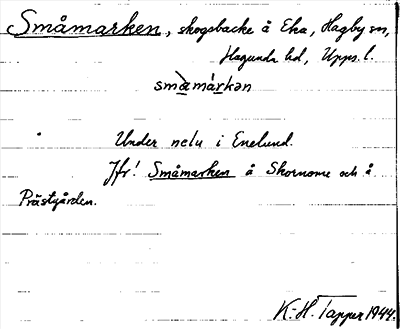 Småmarken, skogsbacke å Eka, Hagby sn,
Hagunda hd, Upps. l.
småmárkən
Under nelu i Enelund.
Jfr! Småmarken å Skornome och å
Prästgården.
K.-H. Tapper 1944.